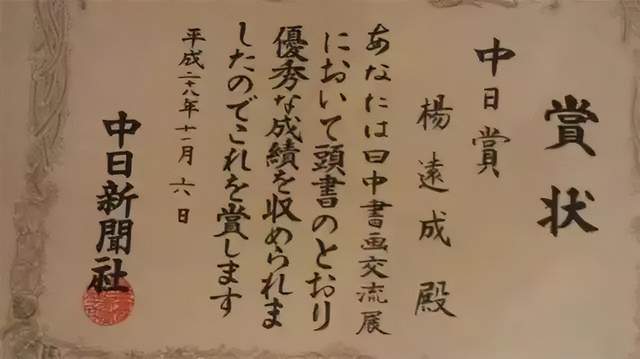 賞状
中日賞
楊遠成殿
あなたは日中書画交流展
において頭書のとおり
優秀な成績を収められま
したのでこれを賞します
平成二十八年十一月六日
中日新聞社